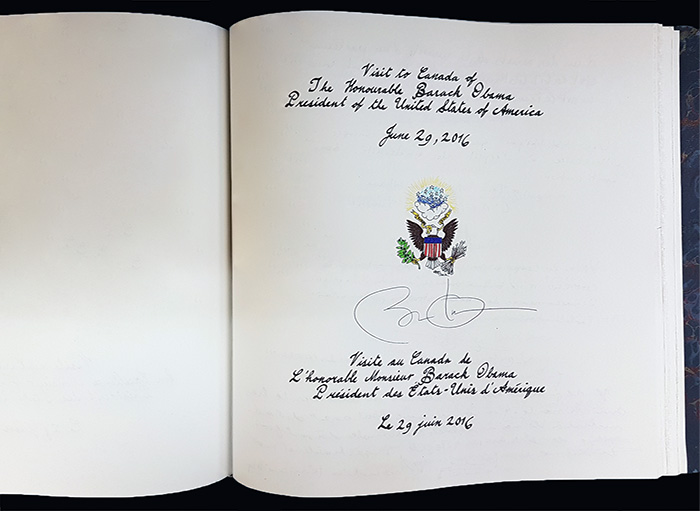 Visit to Canada of
The Honourable Barack Obama
President of the United States of America
June 29, 2016
Visite au Canada de
L'honorable Monsieur Barack Obama
Président des États-Unis d'Amérique
Le 29 juin 2016